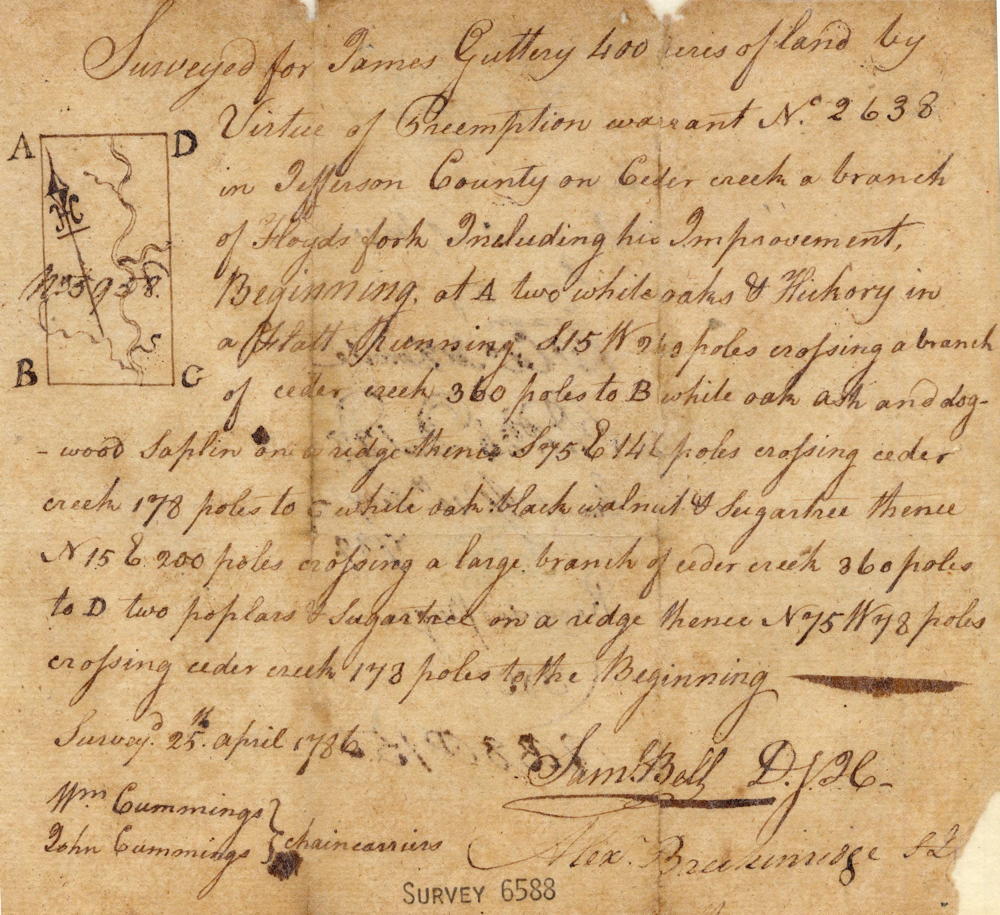 Surveyed for James Guttery 400 acres of land by
Virtue of Preemption warrant No. 2638
in Jefferson County on Ceder creek a branch
of Floyds fork Including his Improvement,
Beginning at A two white oaks & Hickory in
a Flatt Running S15W poles crossing a branch
of ceder creek 360 poles to B white oak ash and dog-
-wood Saplin on a ridge thence S75E 141 poles crossing ceder
creek 178 poles to C white oak black walnut & Sugartree thence
N15E 200 poles crossing a large branch of ceder creek 360 poles
to D two poplars & Sugartree on a ridge thence N75W 78 poles
crossing ceder creek 178 poles to the Beginning
A
D
B
C
Survey'd 25th april 1786
Saml Bell D.S.J.C.
Wm Cummings
John Cummings
chaincarriers
Alex Breckinridge
SURVEY 6588